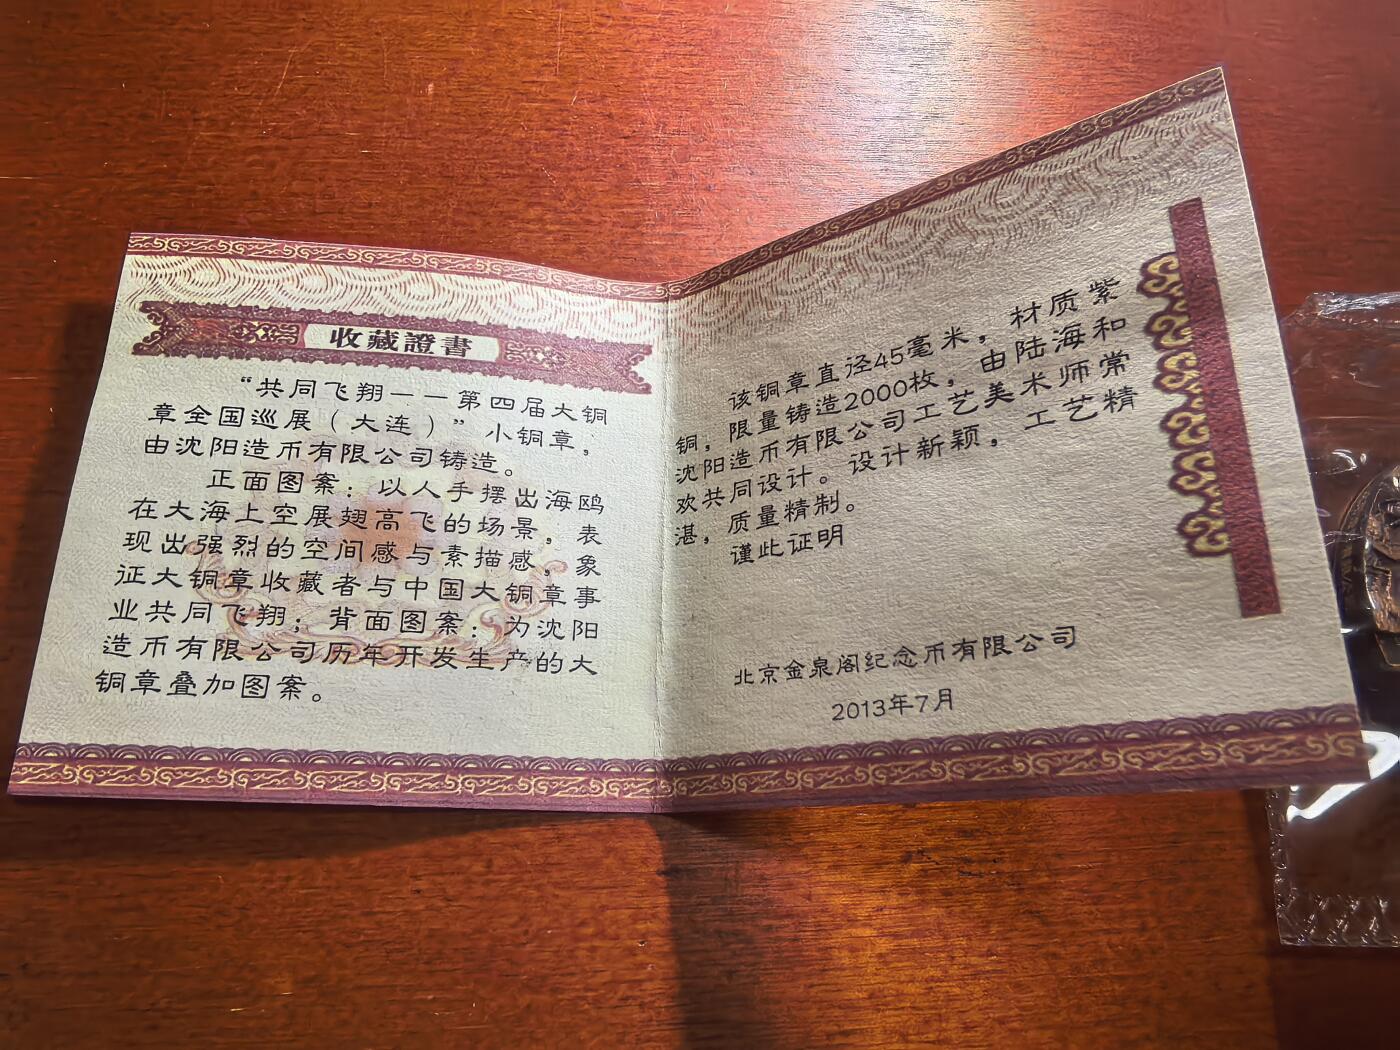 收藏證書
“共同飞翔——第四届大铜
章全国巡展（大连）”小铜章，
由沈阳造币有限公司铸造。
正面图案：以人手摆出海鸥
在大海上空展翅高飞的场景，表
现出强烈的空间感与素描感，象
征大铜章收藏者与中国大铜章事
业共同飞翔；背面图案：为沈阳
造币有限公司历年开发生产的大
铜章叠加图案。
该铜章直径45毫米，材质紫
铜，限量铸造2000枚，由陆海和
沈阳造币有限公司工艺美术师常
欢共同设计。设计新颖，工艺精
湛，质量精制。
谨此证明
北京金泉阁纪念币有限公司
2013年7月